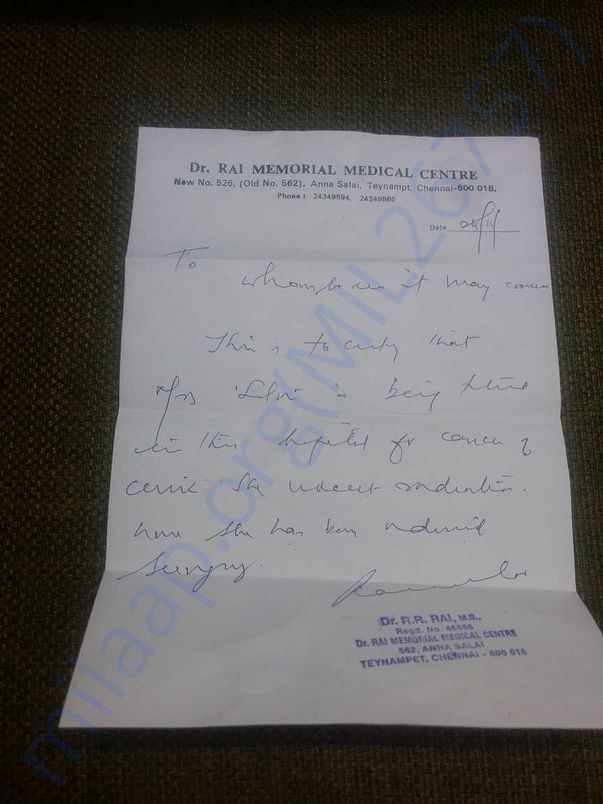 Dr. RAI MEMORIAL MEDICAL CENTRE
New No. 526, (Old No. 562), Anna Salai, Teynampt, Chennai-600 018.
Phone : 24349594, 24349860
Date
To
whomsoever it may concern
This is to certify that
Mrs Selvi is being treated
in this hospital for cancer of
cervix. She underwent radiation.
Now she has been advised
Surgery.
Dr. R.R. RAI, M.S.,
Regd. No.
Dr. RAI MEMORIAL MEDICAL CENTRE
562, ANNA SALAI
TEYNAMPET, CHENNAI - 600 018
milaap.org(MIL26757)